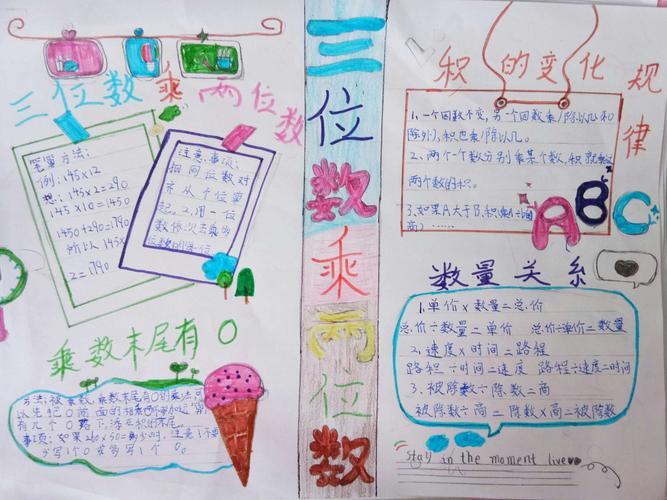 三位数乘两位数
笔算方法:
例:145×12
想:145×2=290
145×10=1450
1450+290=1740
所以145×
2=1740
注意事项:
相同位数对
齐从个位算
起,2.用一位
数依次去乘
乘数末尾有0
方法:被乘数、乘数末尾有0的乘法,可
以先把0前面的相乘,
有几个0落下,添在积的末尾。
事项:如果260×50=多少时,注意了不要
少写1个0或多写1个0。
三位数乘两位数
积的变化规律
1、一个因数不变,另一个因数乘/除以几(0
除外),积也乘/除以几。
2、两个一个数分别乘某个数,积就乘这
两个数的积。
3、如果A大于B,积
高)……
ABC
数量关系
1.单价×数量=总价
总价÷数量=单价 总价÷单价=数量
2.速度×时间=路程
路程÷时间=速度 路程÷速度=时间
3.被除数÷除数=商
被除数÷商=除数×商=被除数
stay in the moment live